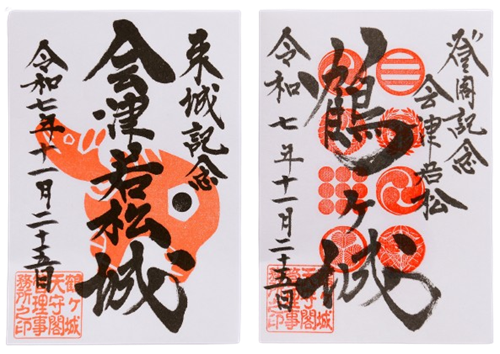 来城記念
会津若松城
令和七年十一月二十五日
鶴ヶ城
天守閣
管理事
務所之印
登閣記念
会津若松
鶴ヶ城
令和七年十一月二十五日
鶴ヶ城
天守閣
管理事
務所之印